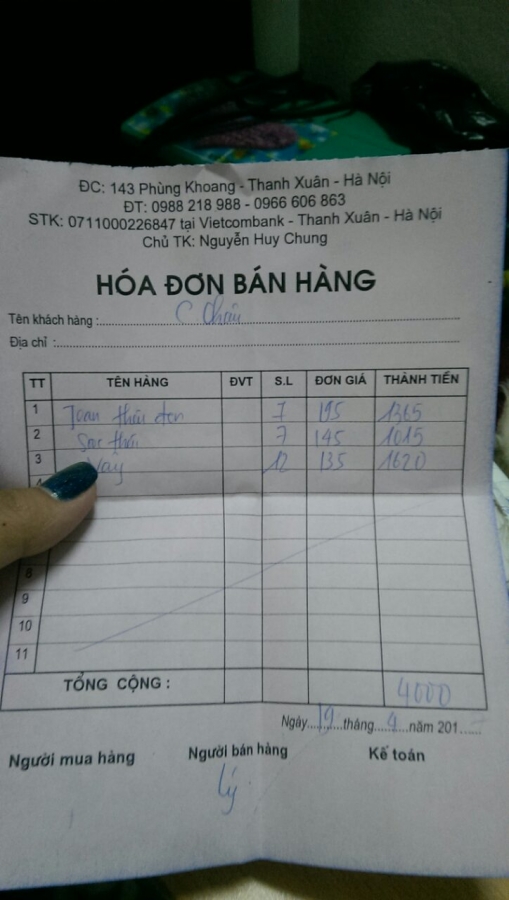 ĐC: 143 Phùng Khoang - Thanh Xuân - Hà Nội
ĐT: 0988 218 988 - 0966 606 863
STK: 0711000226847 tại Vietcombank - Thanh Xuân - Hà Nội
Chủ TK: Nguyễn Huy Chung
HÓA ĐƠN BÁN HÀNG
Tên khách hàng : C
Địa chỉ :
TT TÊN HÀNG ĐVT S.L ĐƠN GIÁ THÀNH TIỀN
1 7 195 1365
2 7 145 1015
3 12 135 1620
8
9
10
11
TỔNG CỘNG : 4000
Ngày 19 tháng 4 năm 201
Người mua hàng Người bán hàng Kế toán
Lý